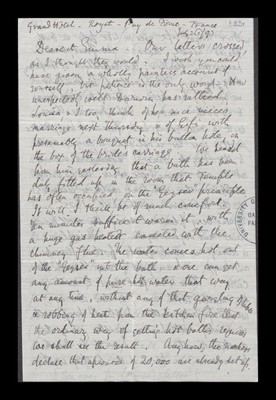 Grand Hotel. Royat - Puy de Dome - France
July 26/93
Dearest Emma. Our letters crossed
as I thought they would. I wish you could
have given a wholly painless account of
yourself, but patience is the only word. How
unexpectedly
Louisa. I too think of her nice niece's
marriage next Thursday & of Gifi with
presumably a bouquet in his button hole, on
the box of the bride's carriage. We heard
from him yesterday that a bath has been
duly fitted up in the room that Trumble
has often occupied, on the "Geyser" principle.
It will I think be of much comfort.
Ten minutes sufficient warm it, with
a huge gas heater connected with the
chimney flue. The water comes hot out
of the "Geyser" into the bath, & one can get
any amount of pure hot water that way
at any time, without any of that gurgling of pipes
& robbing of heat from the kitchen fire that
the ordinary way of getting hot baths requires
We shall see the result. Anyhow, the makers
declare that upwards of 20,000 are already set up,